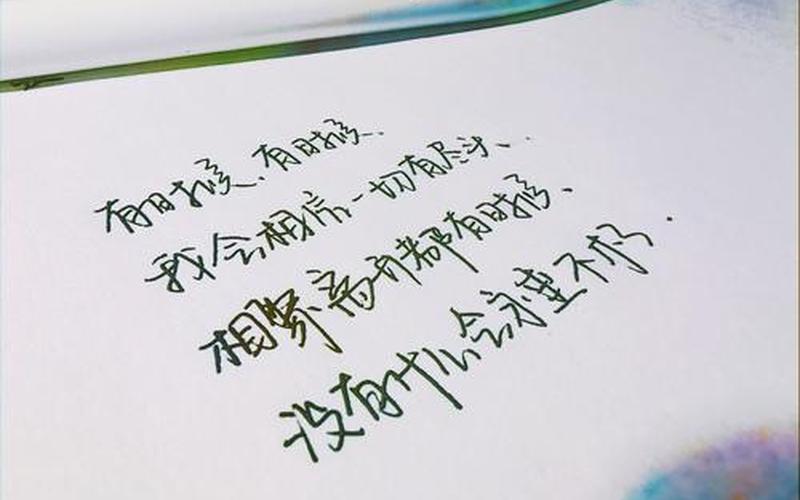 有时候、有时候、
我会相信一切有尽头、
相聚离开都有时候、
没有什么会永垂不朽.